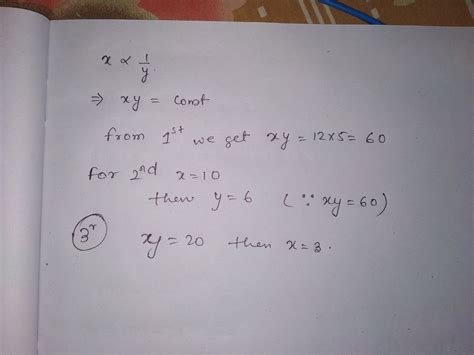 x ∝ 1/y
⇒ xy = const
from 1st we get xy = 12×5 = 60
for 2nd x = 10
then y = 6 (∵ xy = 60)
3r xy = 20 then x = 3.